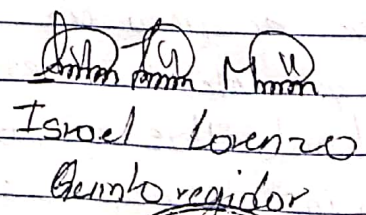 Israel Lorenzo
Quinto regidor